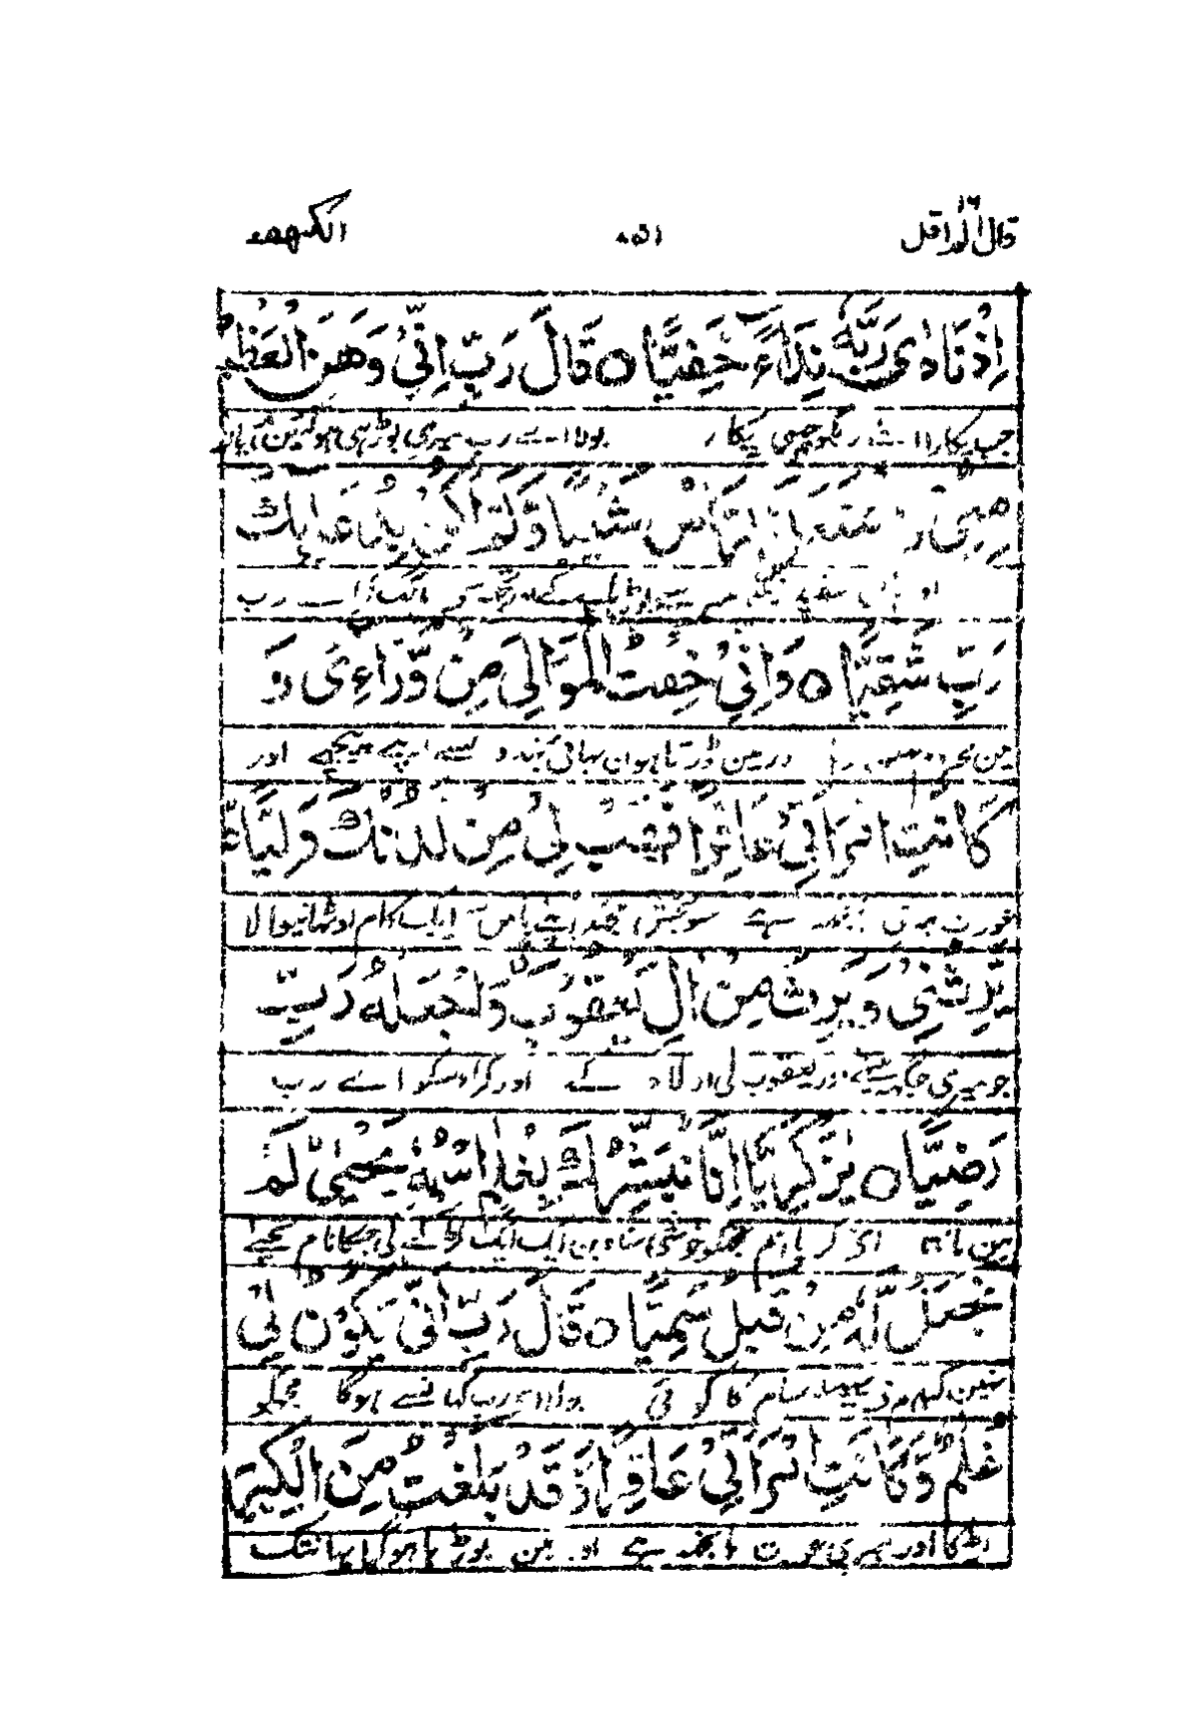 قال الم اقل ١٦
٥١
الکهف
اِذْ نَادٰى رَبَّهٗ نِدَآءً خَفِيًّا ○ قَالَ رَبِّ اِنِّيْ وَهَنَ الْعَظْمُ
جب پکارا اپنے رب کو چھپی پکار بولا اے رب میری بوڑھی ہوگئیں ہڈیاں
مِنِّيْ وَاشْتَعَلَ الرَّاْسُ شَيْبًا وَّلَمْ اَكُنْۢ بِدُعَآئِكَ
اے رب
رَبِّ شَقِيًّا ○ وَاِنِّيْ خِفْتُ الْمَوَالِيَ مِنْ وَّرَآءِيْ وَ
مین محروم نہیں رہا اور مین ڈرتا ہون بھائی بندو سے اپنے پیچھے اور
كَانَتِ امْرَاَتِيْ عَاقِرًا فَهَبْ لِيْ مِنْ لَّدُنْكَ وَلِيًّا ○
عورت میری بانجھ ہے سو بخش مجھ کو اپنے پاس سے ایک کام اوٹھانیوالا
يَّرِثُنِيْ وَيَرِثُ مِنْ اٰلِ يَعْقُوْبَ وَاجْعَلْهُ رَبِّ
جو میری جگہ بیٹھے اور یعقوب کی اولاد کے اور کر اوسکو اے رب
رَضِيًّا ○ يٰزَكَرِيَّآ اِنَّا نُبَشِّرُكَ بِغُلٰمِ اسْمُهٗ يَحْيٰى لَمْ
من مانتا اے زکریا ہم تجھکو خوشی سناوین ایک لڑکے کی جسکا نام یحیی
نَجْعَلْ لَّهٗ مِنْ قَبْلُ سَمِيًّا ○ قَالَ رَبِّ اَنّٰى يَكُوْنُ لِيْ
نہین کیا ہم نے پہلے اس نام کا کوئی بولا اے رب کہان سے ہوگا مجھکو
غُلٰمٌ وَّكَانَتِ امْرَاَتِيْ عَاقِرًا وَّقَدْ بَلَغْتُ مِنَ الْكِبَرِ
لڑکا اور میری عورت بانجھ ہے اور مین بوڑھا ہوگیا یہانتک